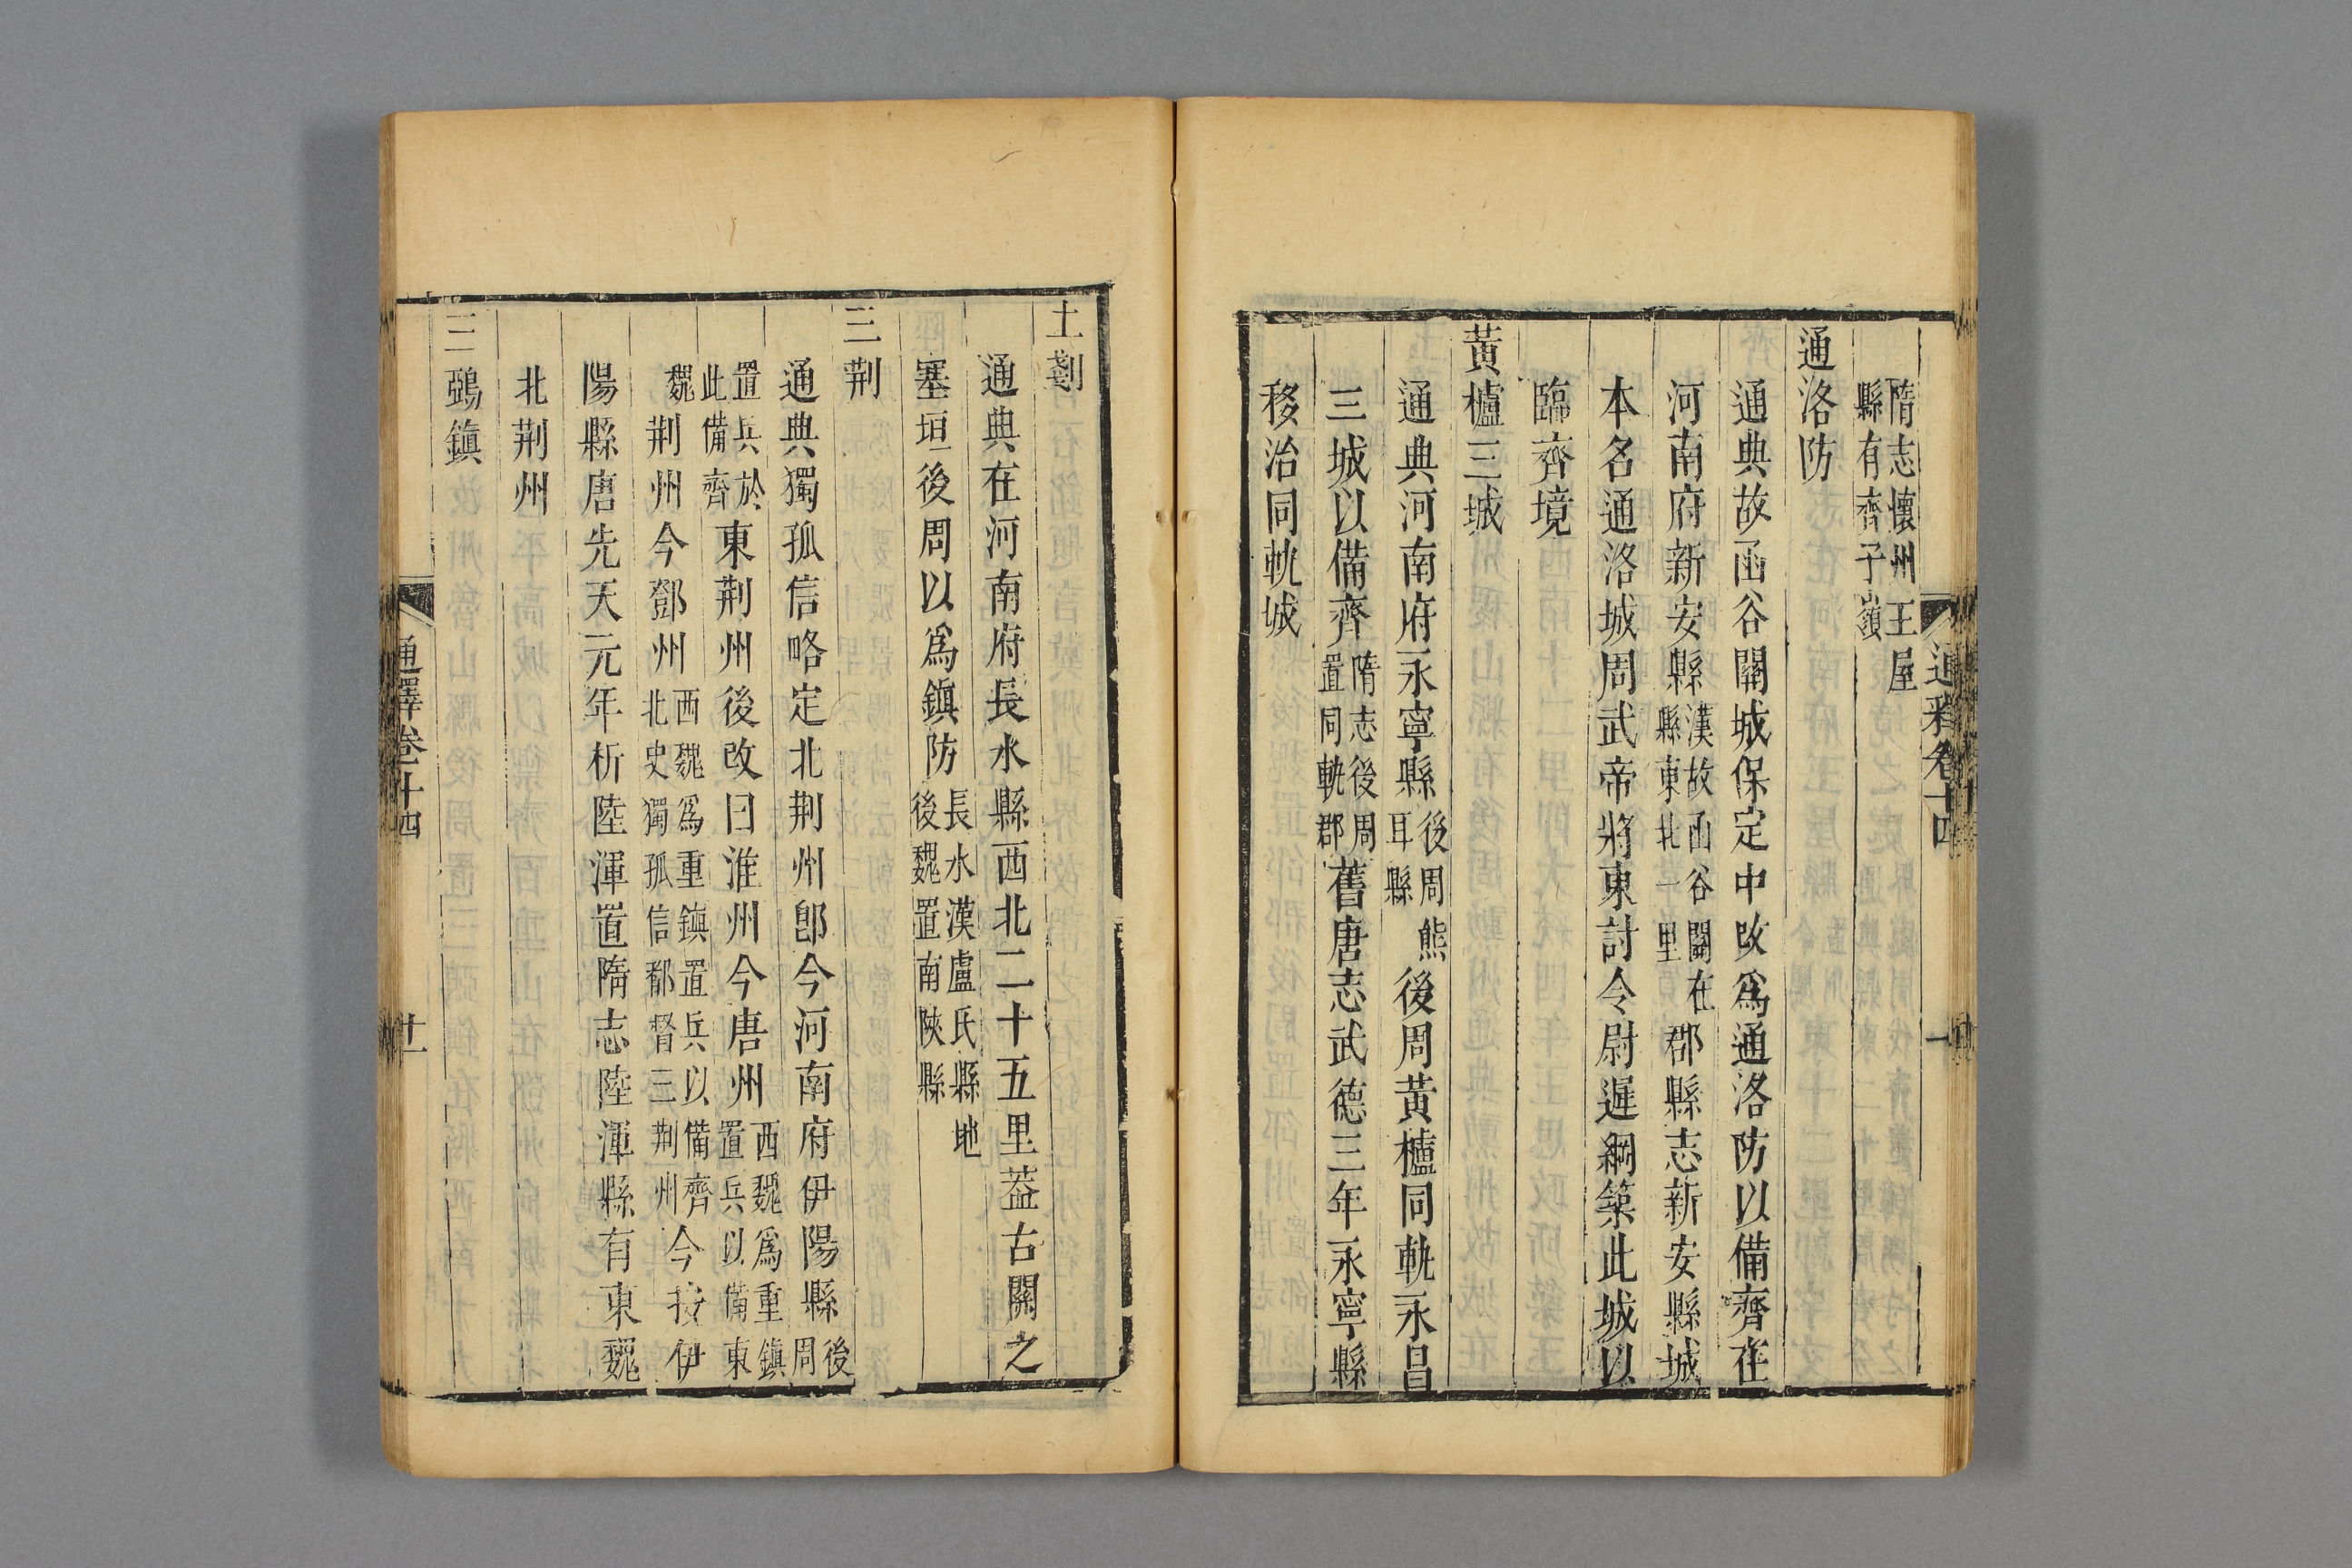 隋志懷州王屋縣有齊子嶺
通洛防
通典故函谷關城保定中改爲通洛防以備齊在
河南府新安縣漢故函谷關在縣東北一里郡縣志新安縣城
本名通洛城周武帝將東討令尉遲綱築此城以
臨齊境
黃櫨三城
通典河南府永寧縣後周熊耳縣後周黃櫨同軌永昌
三城以備齊隋志後周置同軌郡舊唐志武德三年永寧縣
移治同軌城
土剗
通典在河南府長水縣西北二十五里葢古關之
塞垣後周以爲鎮防長水漢盧氏縣地後魏置南陝縣
三荆
通典獨孤信略定北荆州卽今河南府伊陽縣後周
置兵於此備齊東荆州後改曰淮州今唐州西魏爲重鎮置兵以備東
魏荆州今鄧州西魏爲重鎮置兵以備齊北史獨孤信都督三荆州今按伊
陽縣唐先天元年析陸渾置隋志陸渾縣有東魏
北荆州
三鵶鎮
通釋卷十四
十一